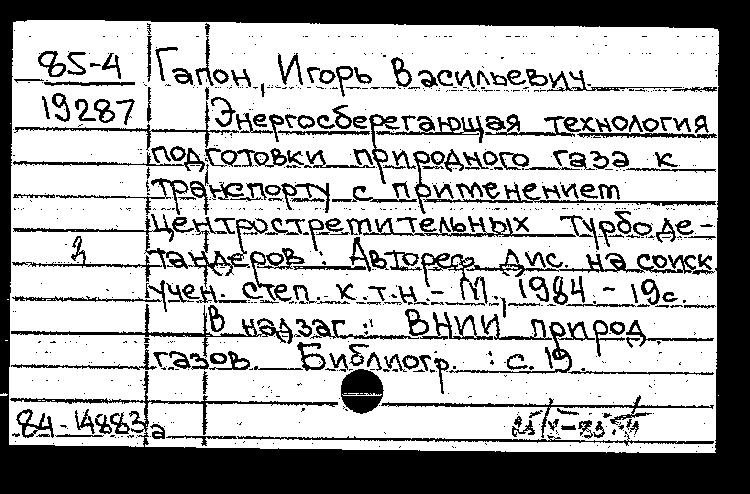 85-4 Гапон, Игорь Васильевич
19287 Энергосберегающая технология
подготовки природного газа к
транспорту с применением
центростремительных турбоде-
тандеров : Автореф. дис. на соиск.
учен. степ. к.т.н. - М., 1984. - 19с.
В надзаг.: ВНИИ природ.
газов. Библиогр. : с. 19.
84-14883а